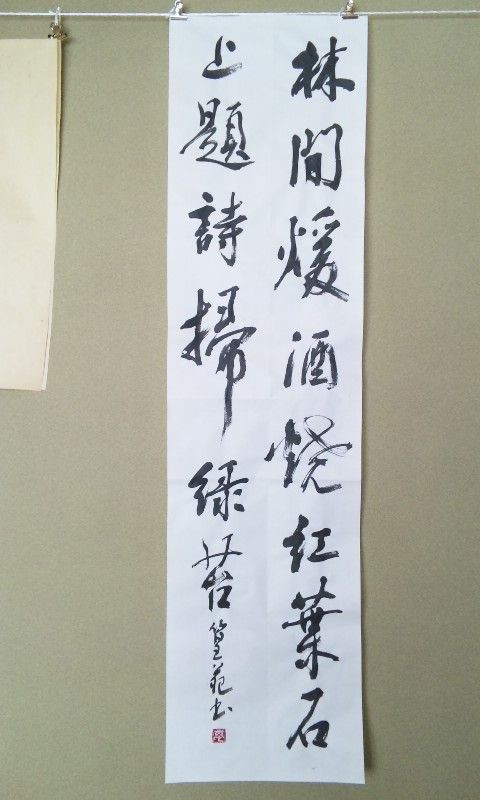 林間煖酒燒紅葉石
上題詩掃緑苔
篁苑书